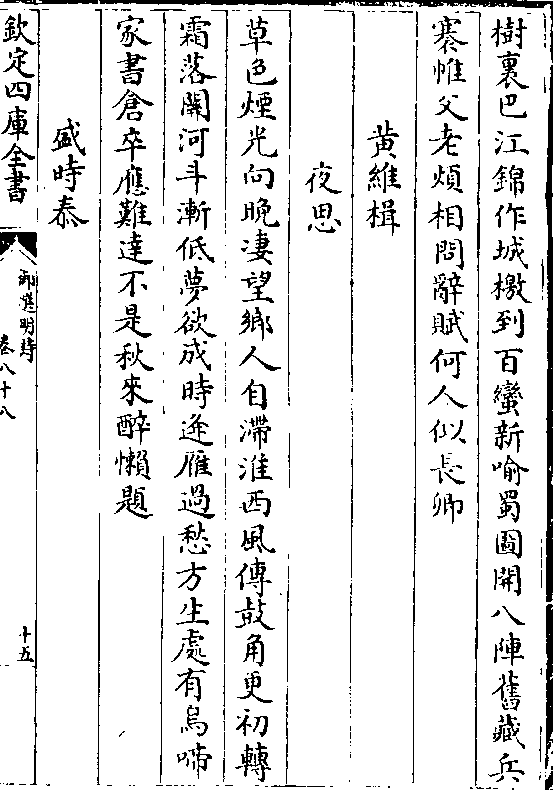 樹裏巴江錦作城檄到百蠻新喻蜀圖開八陣舊藏兵
褰帷父老煩相問辭賦何人似長卿
黄維楫
夜思
草色煙光向晚凄望鄉人自滯淮西風傳鼓角更初轉
霜落關河斗漸低夢欲成時逢雁過愁方生處有烏啼
家書倉卒應難達不是秋來醉懶題
盛時泰
欽定四庫全書
御選明詩
卷八十八
十五